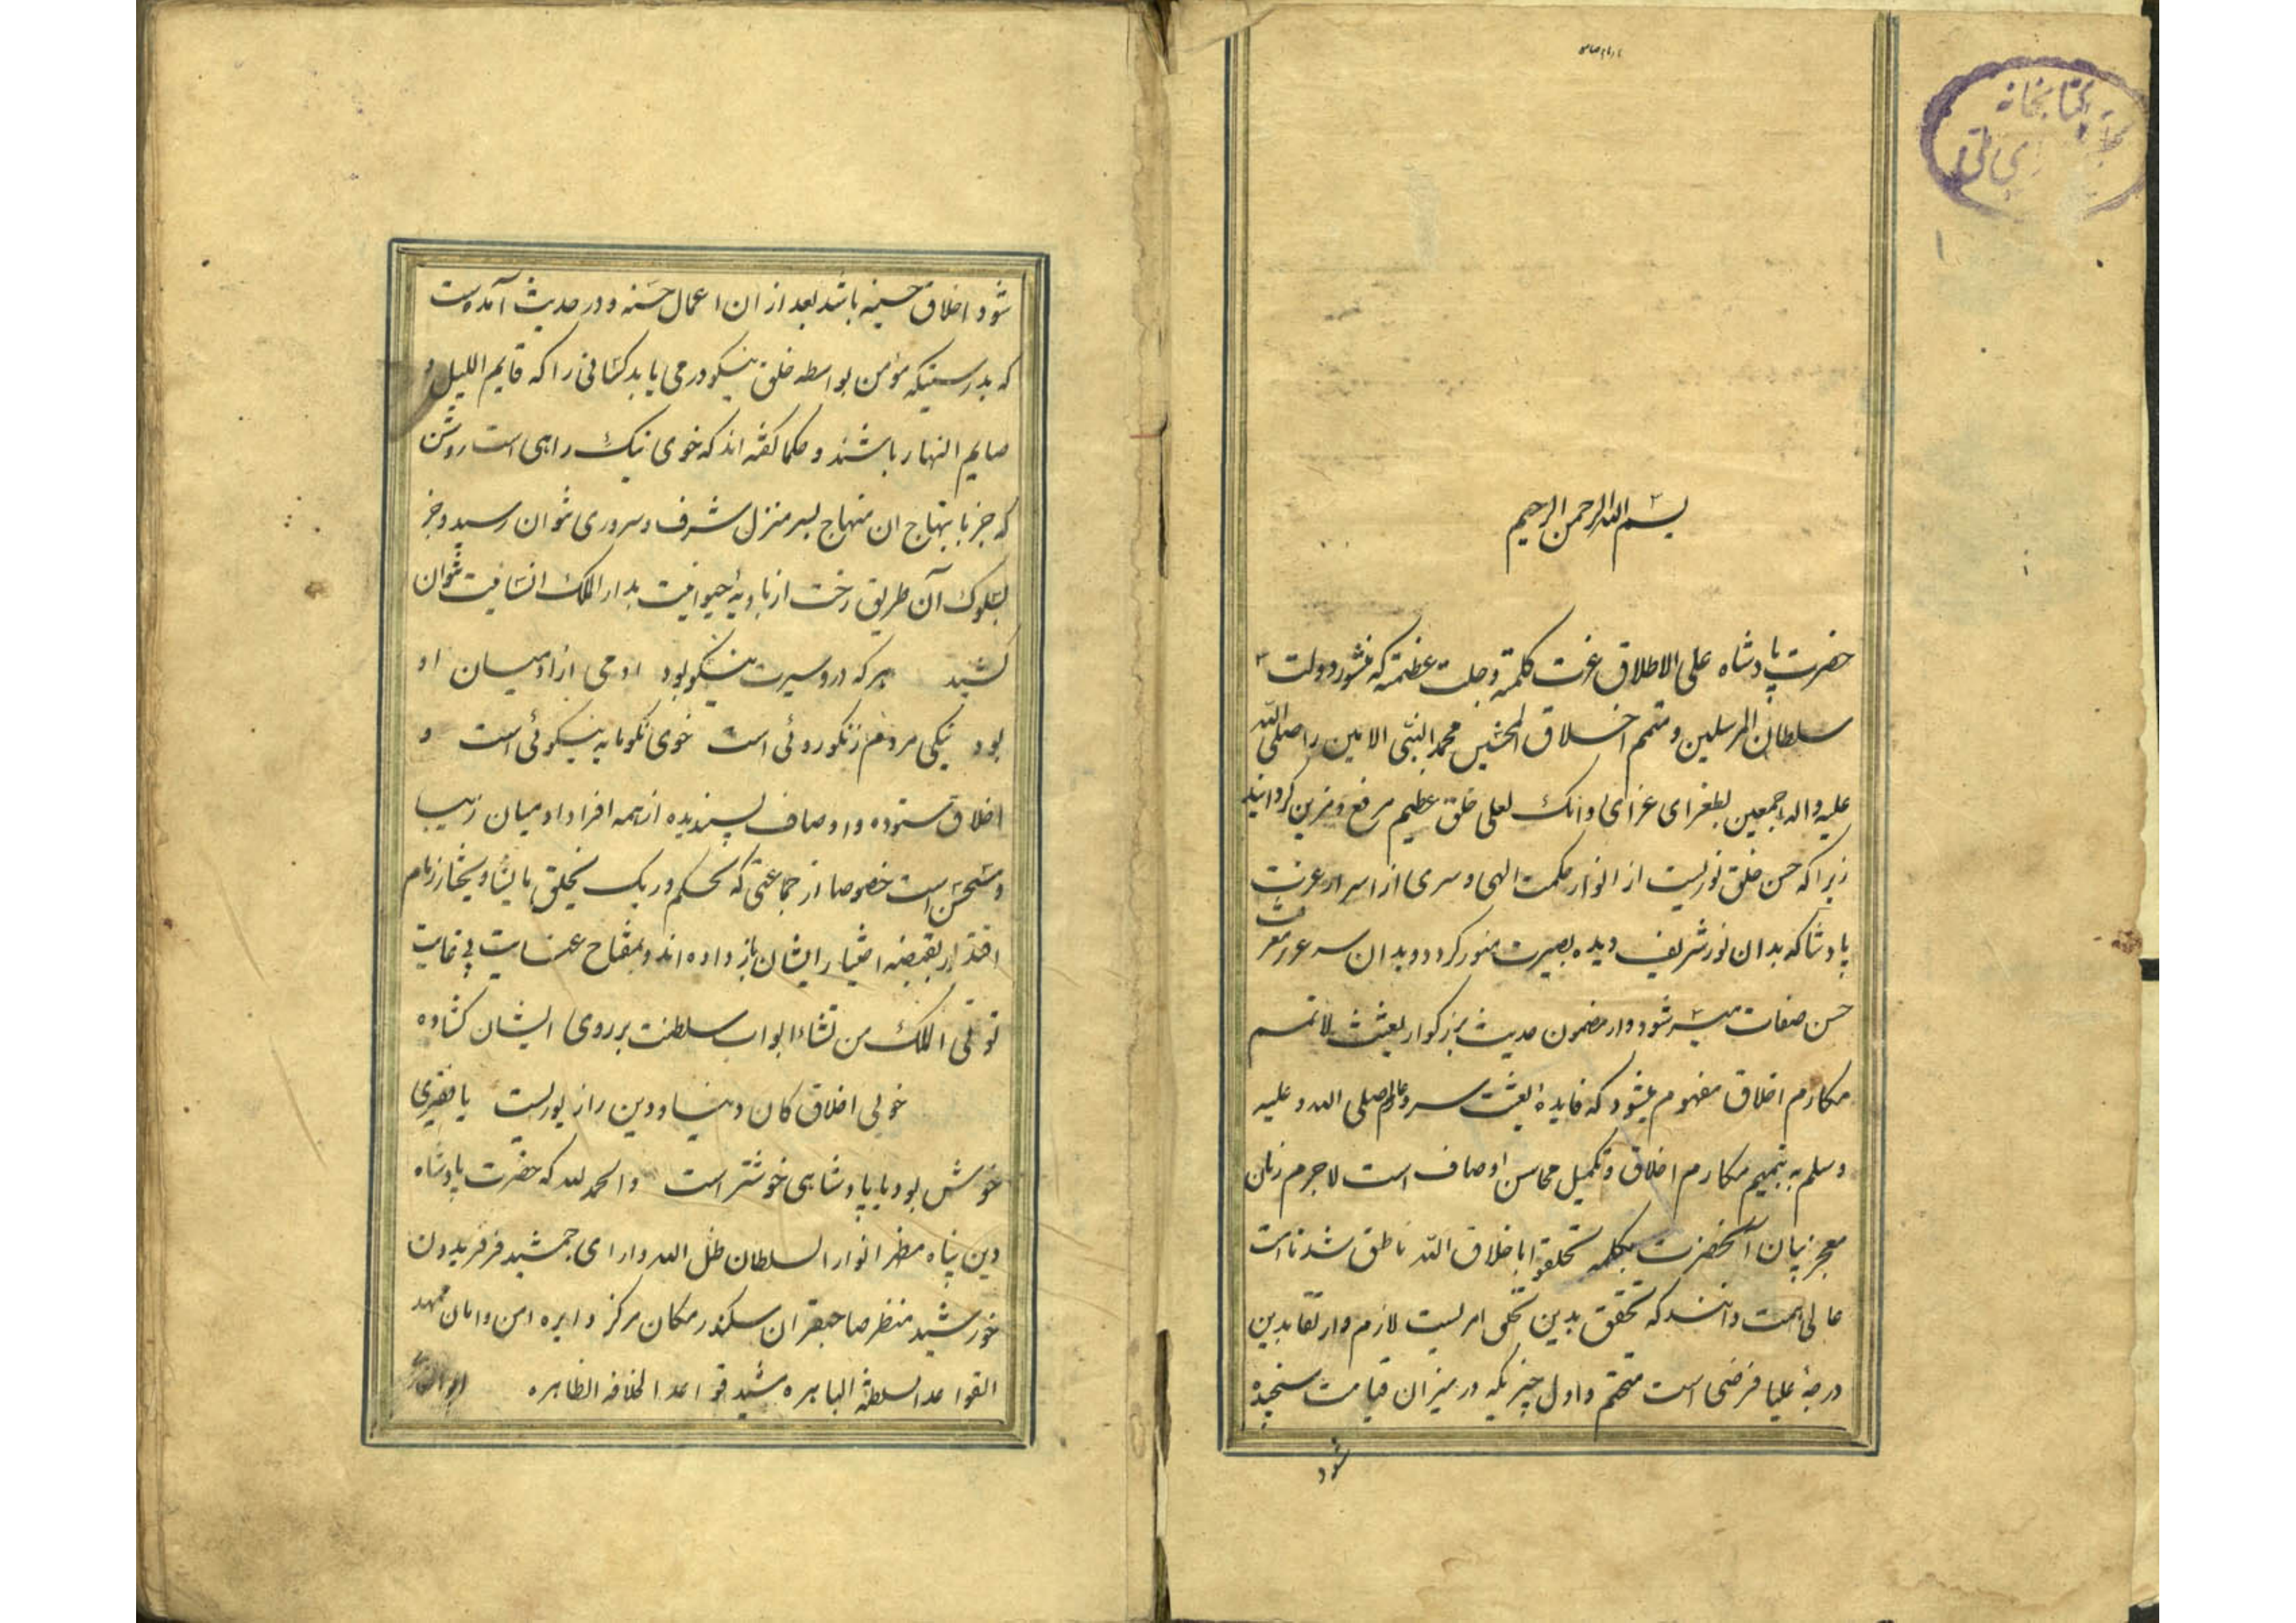 کتابخانه
بسم الله الرحمن الرحیم
حضرت پادشاه علی الاطلاق عزت کلمته و جلت عظمته که منشور دولت
سلطان المرسلین و متمم اخلاق المحسنین محمد النبی الامین را صلی الله
علیه و اله اجمعین بطغرای غرای وانک لعلی خلق عظیم مرفع و مزین گردانیده
زیرا که حسن خلق نوریست از انوار حکمت الهی و سری از اسرار عزت
پادشاکه بدان نور شریف دیده بصیرت منور کردد و بدان سر
حسن صفات میسر شود و از مضمون حدیث بزرکوار بعثت لاتمم
مکارم اخلاق مفهوم میشود که فایده بعثت سرور عالم صلی الله و علیه
وسلم به تتمیم مکارم اخلاق و تکمیل محاسن اوصاف است لاجرم زبان
معجز بیان آنحضرت بکلمه تخلقوا باخلاق الله ناطق شد تا امت
عالی همت دانند که تحقق بدین تحلی امریست لازم و ارتقا بدین
درجهٔ علیا فرضی است متحتم و اول چیزیکه در میزان قیامت سنجیده
شود
شود اخلاق حسنه باشد بعد از ان اعمال حسنه و در حدیث آمده است
که بدرستیکه مؤمن بواسطه خلق نیکو در می یابد کسانی را که قایم اللیل و
صایم النهار باشند و حکما کفته اند که خوی نیک راهی است روشن
که جز بابتهاج ان منهاج بسر منزل شرف و سروری نتوان رسید و جز
بسلوک آن طریق رخت از بادیهٔ حیوانیت بدار الملک انسانیت نتوان
کشید هر که در و سیرت نیکو بود ادمی از ادمیان او
بود نیکی مردم نه نکوروئی است خوی نکو مایه نیکوئی است و
اخلاق ستوده و اوصاف پسندیده از همه افراد ادمیان زیبا
و مستحسن است خصوصا از جماعتی که بحکم و ربک یخلق مایشا و یختار زمام
اقتدار بقبضه اختیار ایشان باز داده اند و بمفتاح عنایت بی غایت
توتی الملک من تشاء ابواب سلطنت بر روی ایشان کشاده
خوبی اخلاق کان دنیا و دین را زیورست با فقیری
خوش بود با پادشاهی خوشتر است و الحمد لله که حضرت پادشاه
دین پناه مظهر انوار السلطان ظل الله دارای جمشید فر فریدون
خورشید منظر صاحبقران سکندر مکان مرکز دایره امن و امان ممهد
القواعد السلطنة الباهره مشید قواعد الخلافه الظاهره